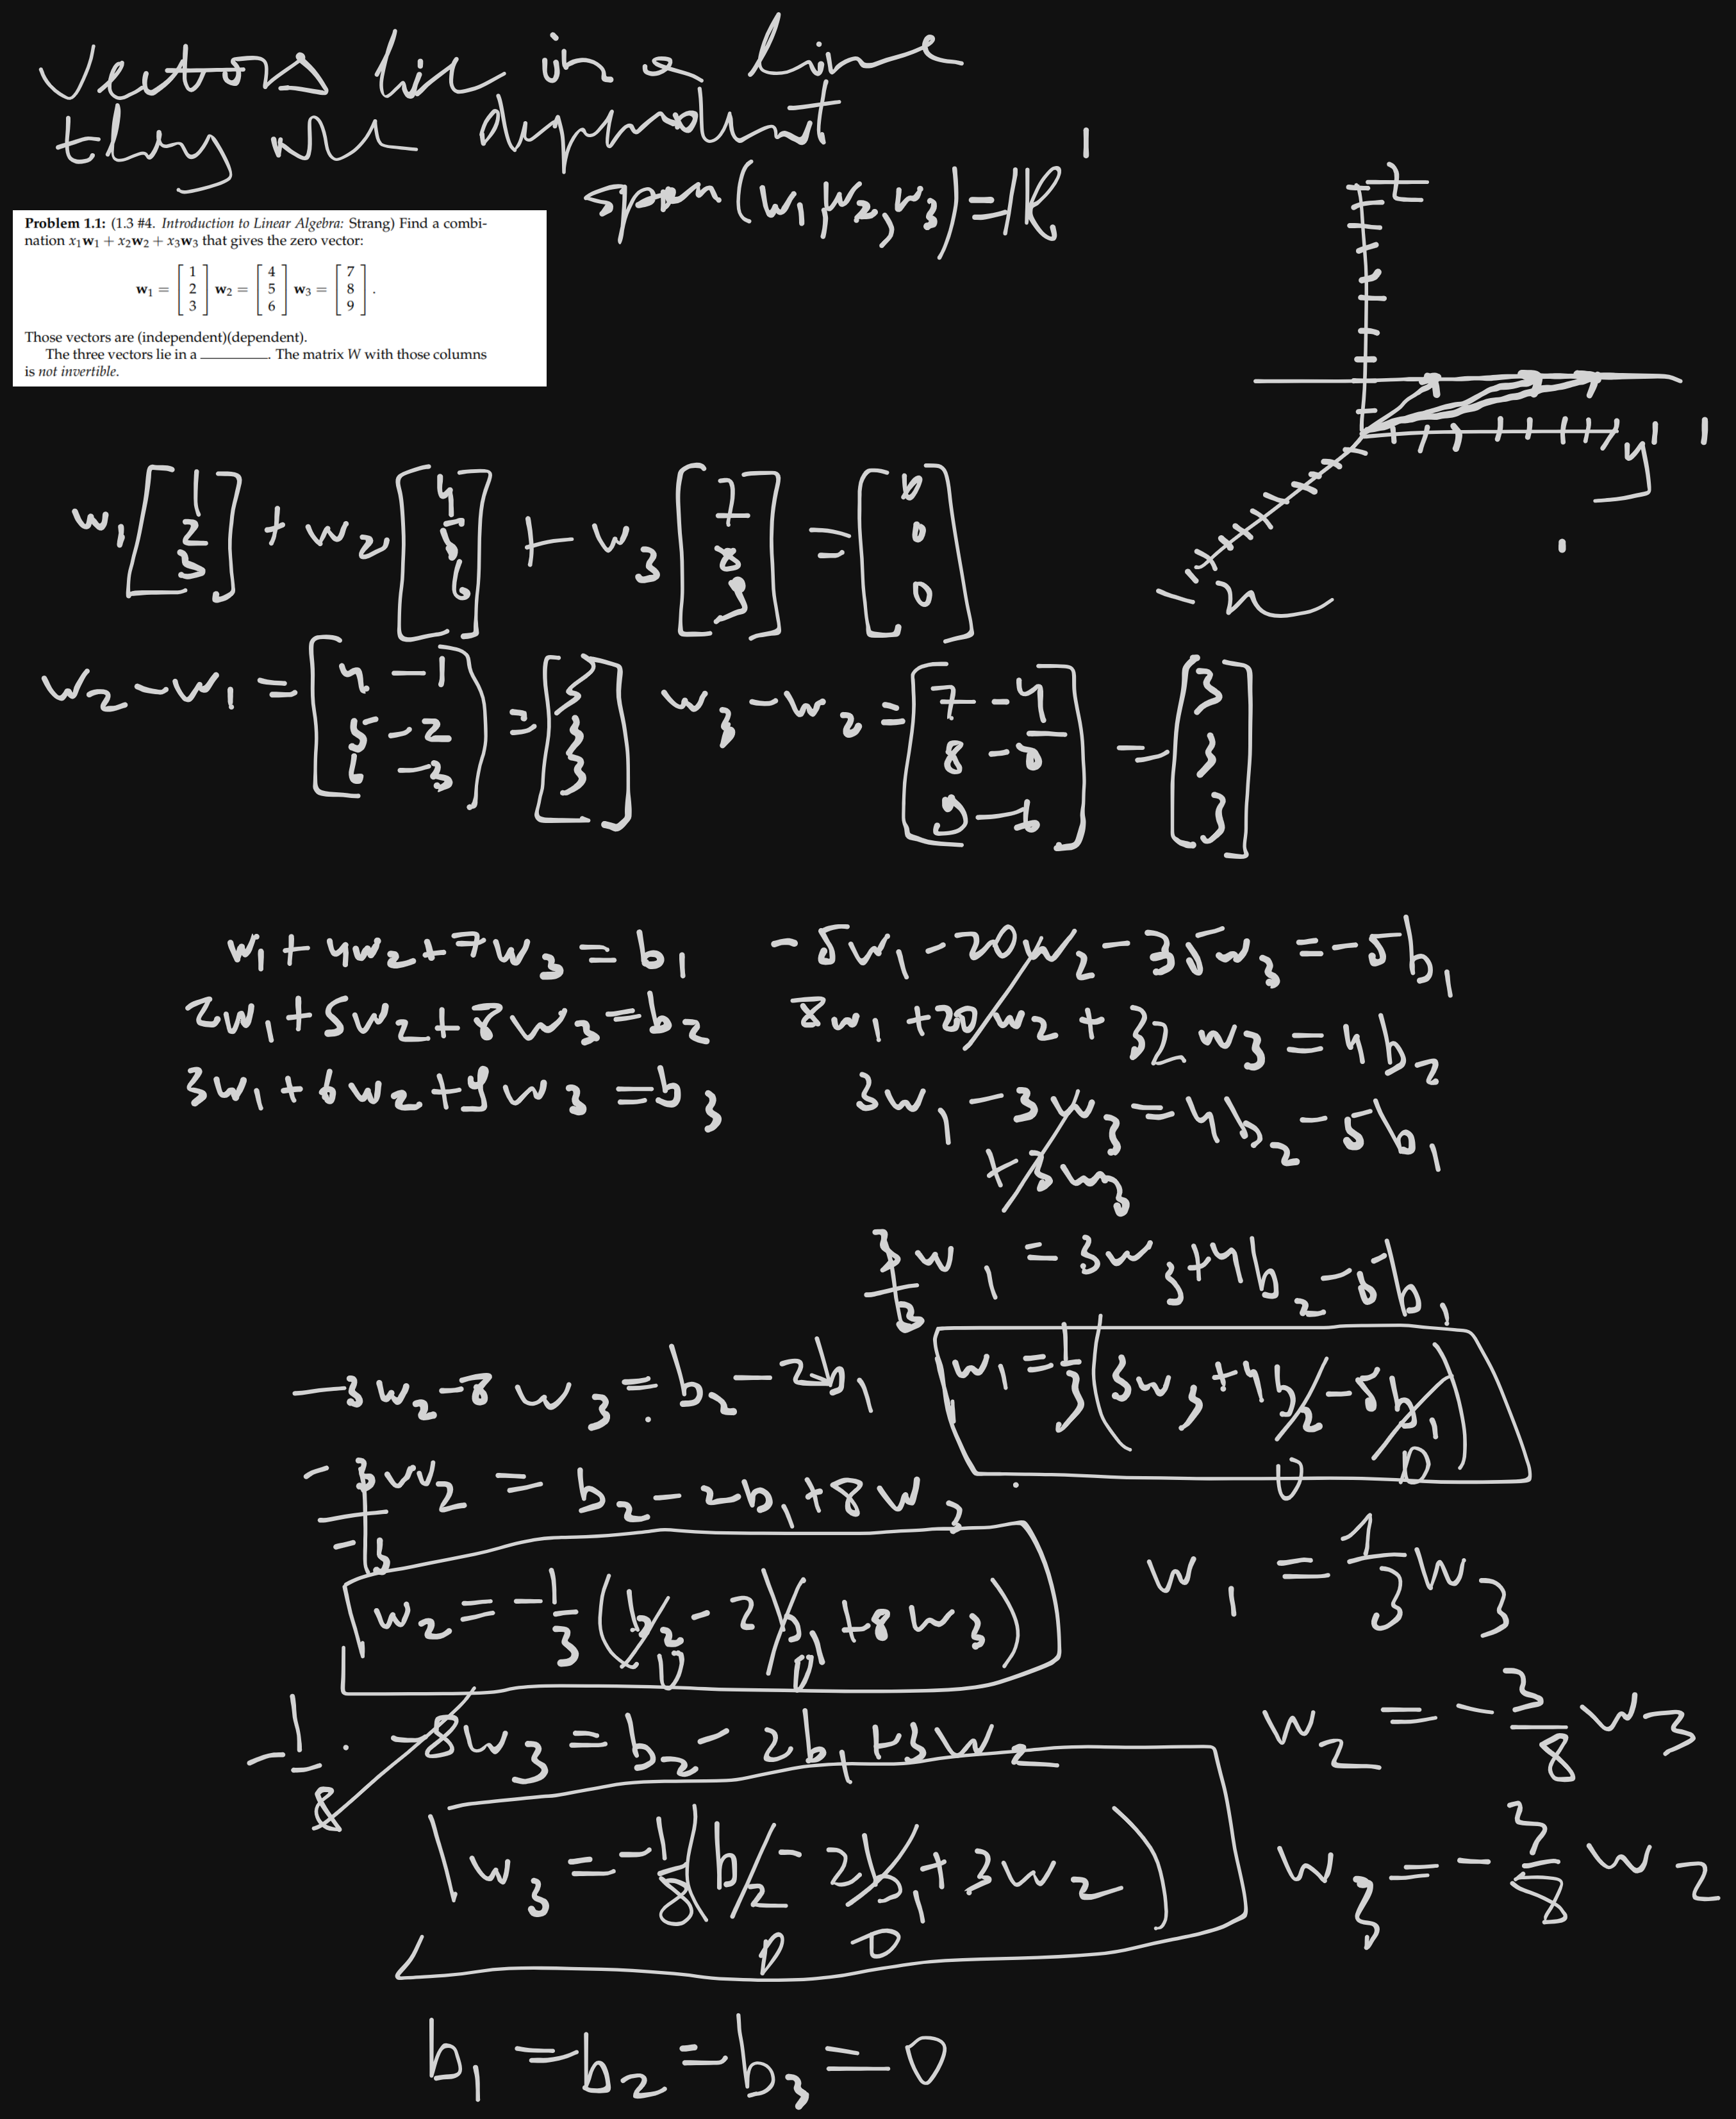 Vectors lie in a line
they are dependent
span(w₁, w₂, w₃) = ℝ¹
z
Problem 1.1: (1.3 #4. Introduction to Linear Algebra: Strang) Find a combi-
nation x₁w₁ + x₂w₂ + x₃w₃ that gives the zero vector:
w₁ = [1 2 3] w₂ = [4 5 6] w₃ = [7 8 9].
Those vectors are (independent)(dependent).
The three vectors lie in a ________. The matrix W with those columns
is not invertible.
y
x
w₁ [1 2 3] + w₂ [4 5 6] + w₃ [7 8 9] = [0 0 0]
w₂ − w₁ = [4 − 1 5 − 2 6 − 3] = [3 3 3] w₃ − w₂ = [7 − 4 8 − 5 9 − 6] = [3 3 3]
w₁ + 4w₂ + 7w₃ = b₁ −5w₁ − 20w₂ − 35w₃ = −5b₁
2w₁ + 5w₂ + 8w₃ = b₂ 8w₁ + 20w₂ + 32w₃ = 4b₂
3w₁ + 6w₂ + 9w₃ = b₃ 3w₁ − 3w₃ = 4b₂ − 5b₁
+ 3w₃
3/3 w₁ = 3w₃ + 4b₂ − 5b₁
−3w₂ − 8w₃ = b₂ − 2b₁ w₁ = 1/3 (3w₃ + 4b₂ − 5b₁)
0 0
−3/−3 w₂ = b₂ − 2b₁ + 8w₃
w₁ = 1/3 w₃
w₂ = −1/3 (b₂ − 2b₁ + 8w₃)
0 0
−1/8 · −8w₃ = b₂ − 2b₁ + 3w₂ w₂ = −3/8 w₃
w₃ = −1/8 (b₂ − 2b₁ + 3w₂) w₃ = −3/8 w₂
0 0
b₁ = b₂ = b₃ = 0